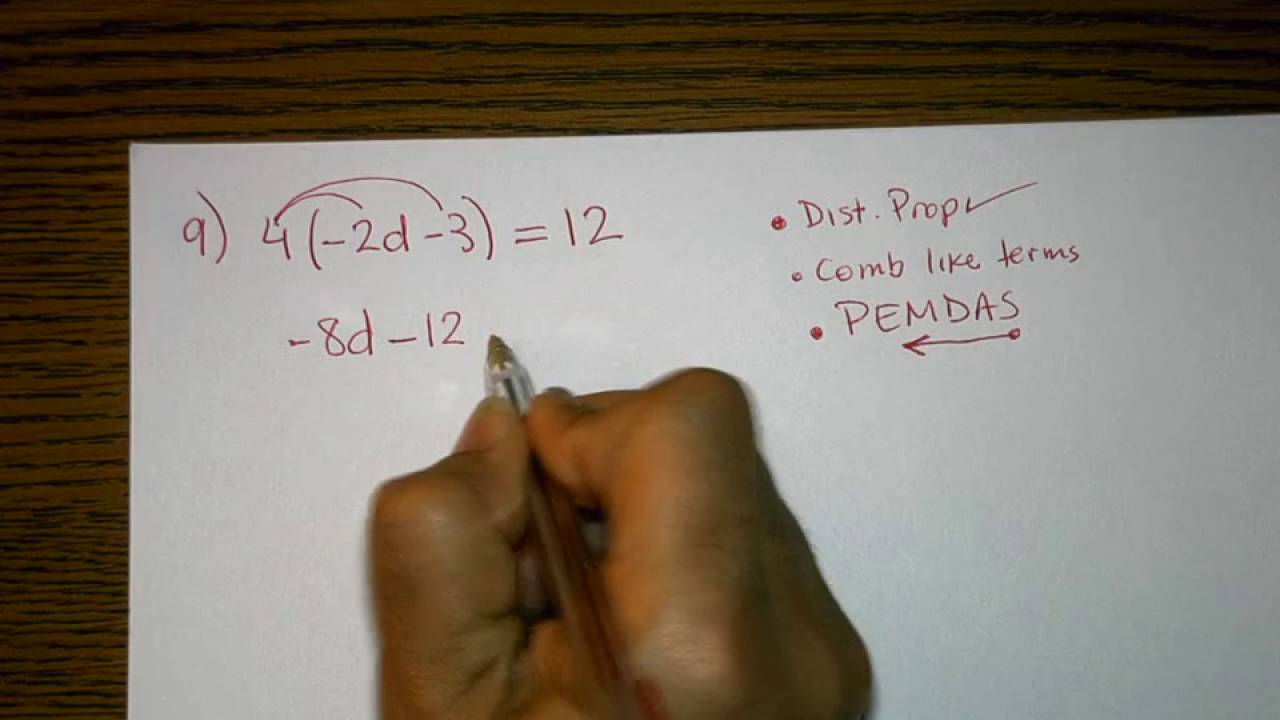 9) 4(-2d-3) = 12
-8d-12
• Dist. Prop ✓
• Comb like terms
• PEMDAS